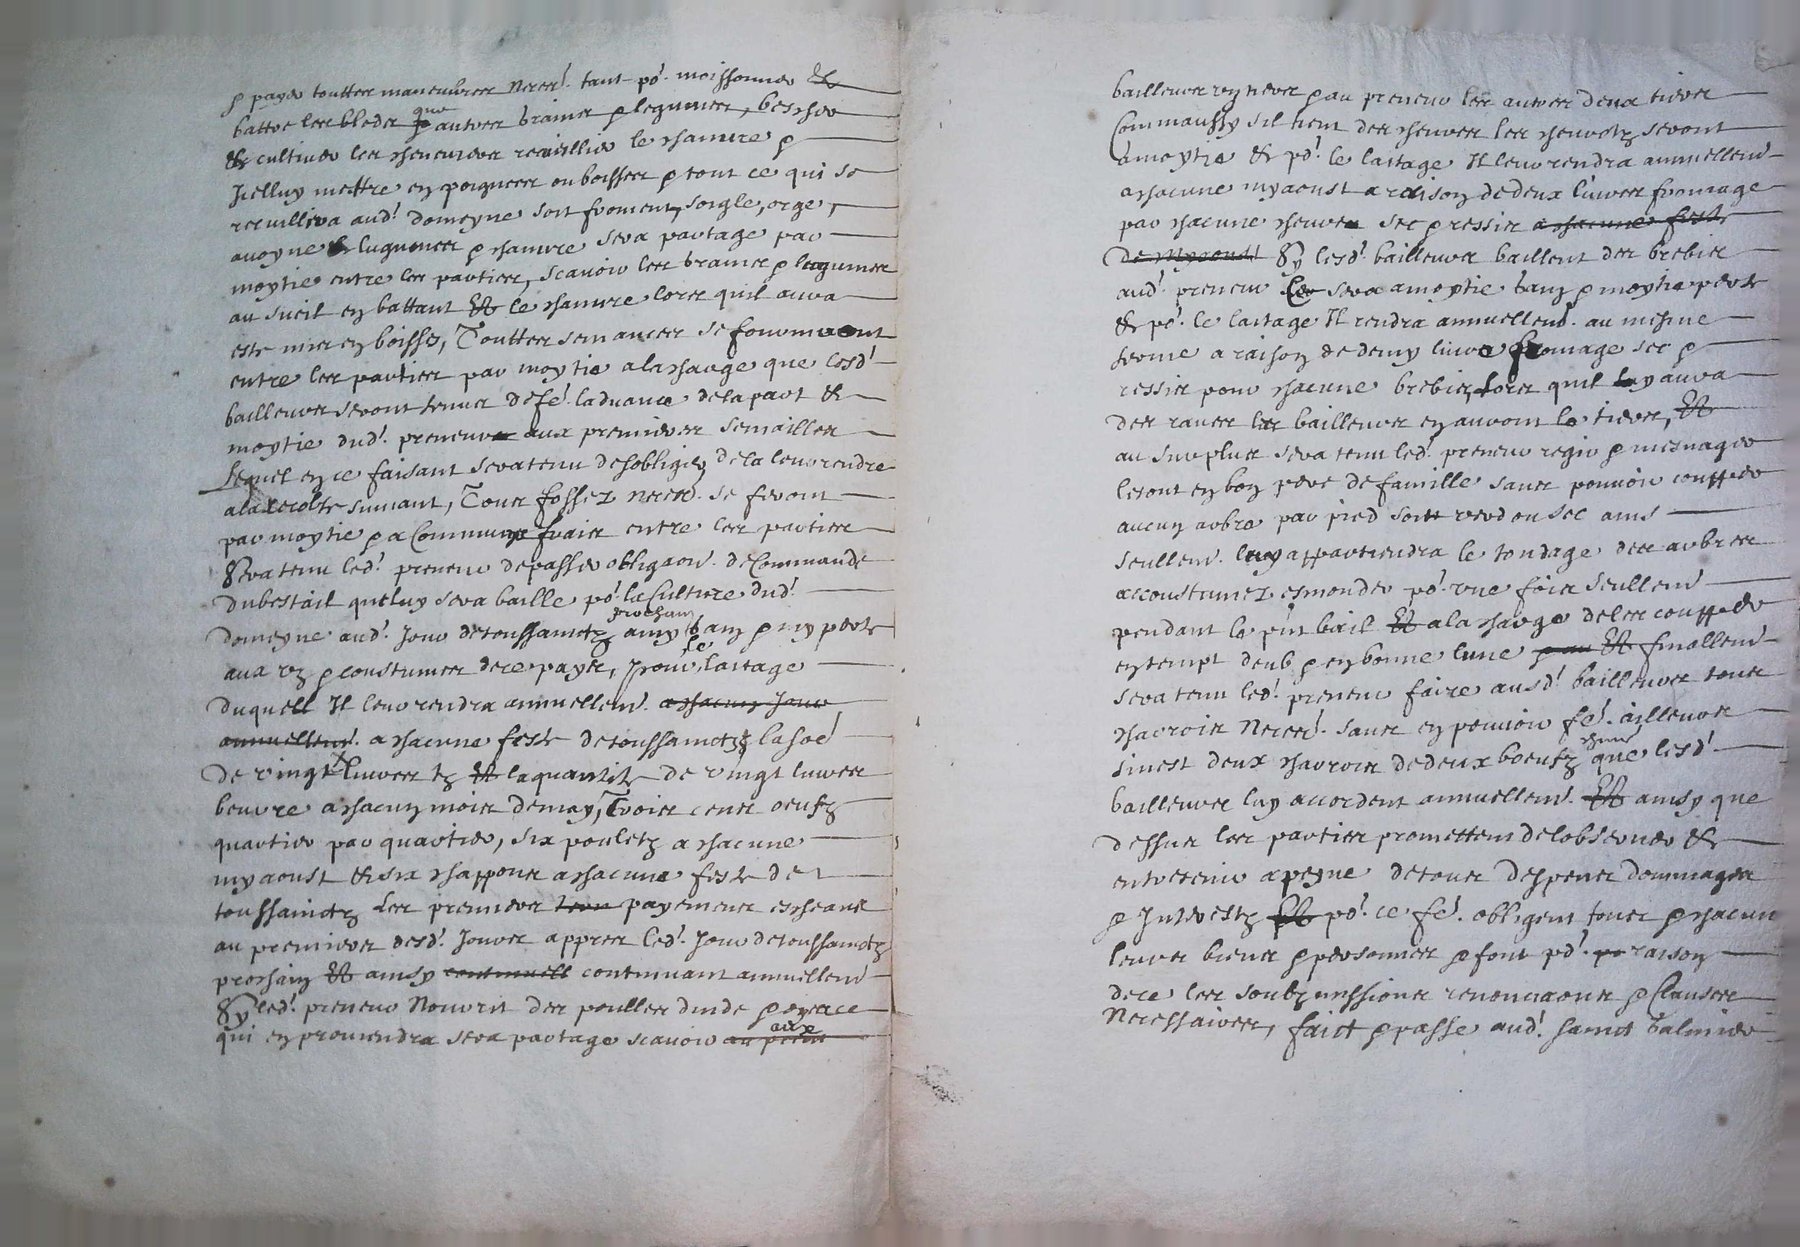 & payer touttes maneuvres necer.es tant po.r moissonner &
battre les bleds que autres grains & legumes, bescher
& cultiver les cheneviers recuillir le chanvre &
Icelluy mettre en poigneés ou boisses & tout ce qui se
recuillira aud.t domeyne soit froment, soigle, orge,
avoyne legumes & chanvre sera partage par
moytie entre les parties, scavoir les grains & legumes
au sueil en battant Et le chanvre lors quil aura
este mis en boisses, Touttes semances se fourniront
entre les parties par moytie a la charge que lesd.t
bailleurs seront tenus de fe.e ladvance de la part &
moytie dud.t preneur aux premieres semailles
Lequel en ce faisant sera tenu de sobliger de la leur rendre
a la recolte suivant, Tous fossez necer.es se feront
par moytie & a Communs fraix entre les parties
Sera tenu led.t preneur de passer obligaon. de Commande
du bestail que luy sera baille po.r la Culture dud.t
domeyne aud.t Jour de toussainctz prochain a my gain & my perte
aux vz & coustumes de ce payis, pour le laitage
duquell Il leur rendra annuellem.t a chacun Jour
annuellem.t a chacune feste de toussainctz la so.e
de vingt livres tz Et la quantite de vingt livres
beurre a chacun mois de may, Trois cens oeufz
quartier par quartier, six pouletz a chacune
my aoust & six chappons a chacune feste de
toussainctz Les premiers payemens escheans
au premiers desd.t Jours appres led.t Jour de toussainctz
prochain Et ainsy continuell continuant annuellem.t
Sy led.t preneur Nourrit des poulles dinde
qui en proviendra sera partage scavoir aux
bailleurs vn tiers & au preneur les autres deux tiers
Comm aussy sil tient des cheuvres les cheuvotz seront
a moytie & po.r le laitage Il leur rendra annuellem.t
a chacune my aoust a raison de deux livres fromage
par chacune cheuvre sec & ressis a chacune feste
de my aoust Sy lesd.t bailleurs baillent des brebis
aud.t preneur sera a moytie gain & moytie perte
& po.r le laitage Il rendra annuellem.t au mesme
terme a raison de demy livre fromage sec &
ressis pour chacune brebis, Lors quil y aura
des raves les bailleurs en auront le tiers, Et
au surplus sera tenu led.t preneur regir & mesnager
le tout en bon pere de famille sans pouvoir coupper
aucun arbre par pied soit verd ou sec ains
seullem.t luy appartiendra le tondage des arbres
accoustumez esmonder po.r vne fois seullem.t
pendant le p.nt bail Et a la charge de les coupper
en temps deub & en bonne lune & au Et finallem.t
sera tenu led.t preneur faire ausd.t bailleurs tous
charrois Necer.es sans en pouvoir fe.e ailleurs
sinest deux charrois de deux boeufz chun que lesd.t
bailleurs luy accordent annuellem.t Et ainsy que
dessus les parties promettent de lobserver &
entretenir a peyne de tous despens dommages
& Interestz Et po.r ce fe.e obligent tous & chacun
leurs biens & personnes & font po.r raison
de ce les soubzmissions renonciaons & Clauses
Necessaires, faict & passe aud.t sainct Galmier